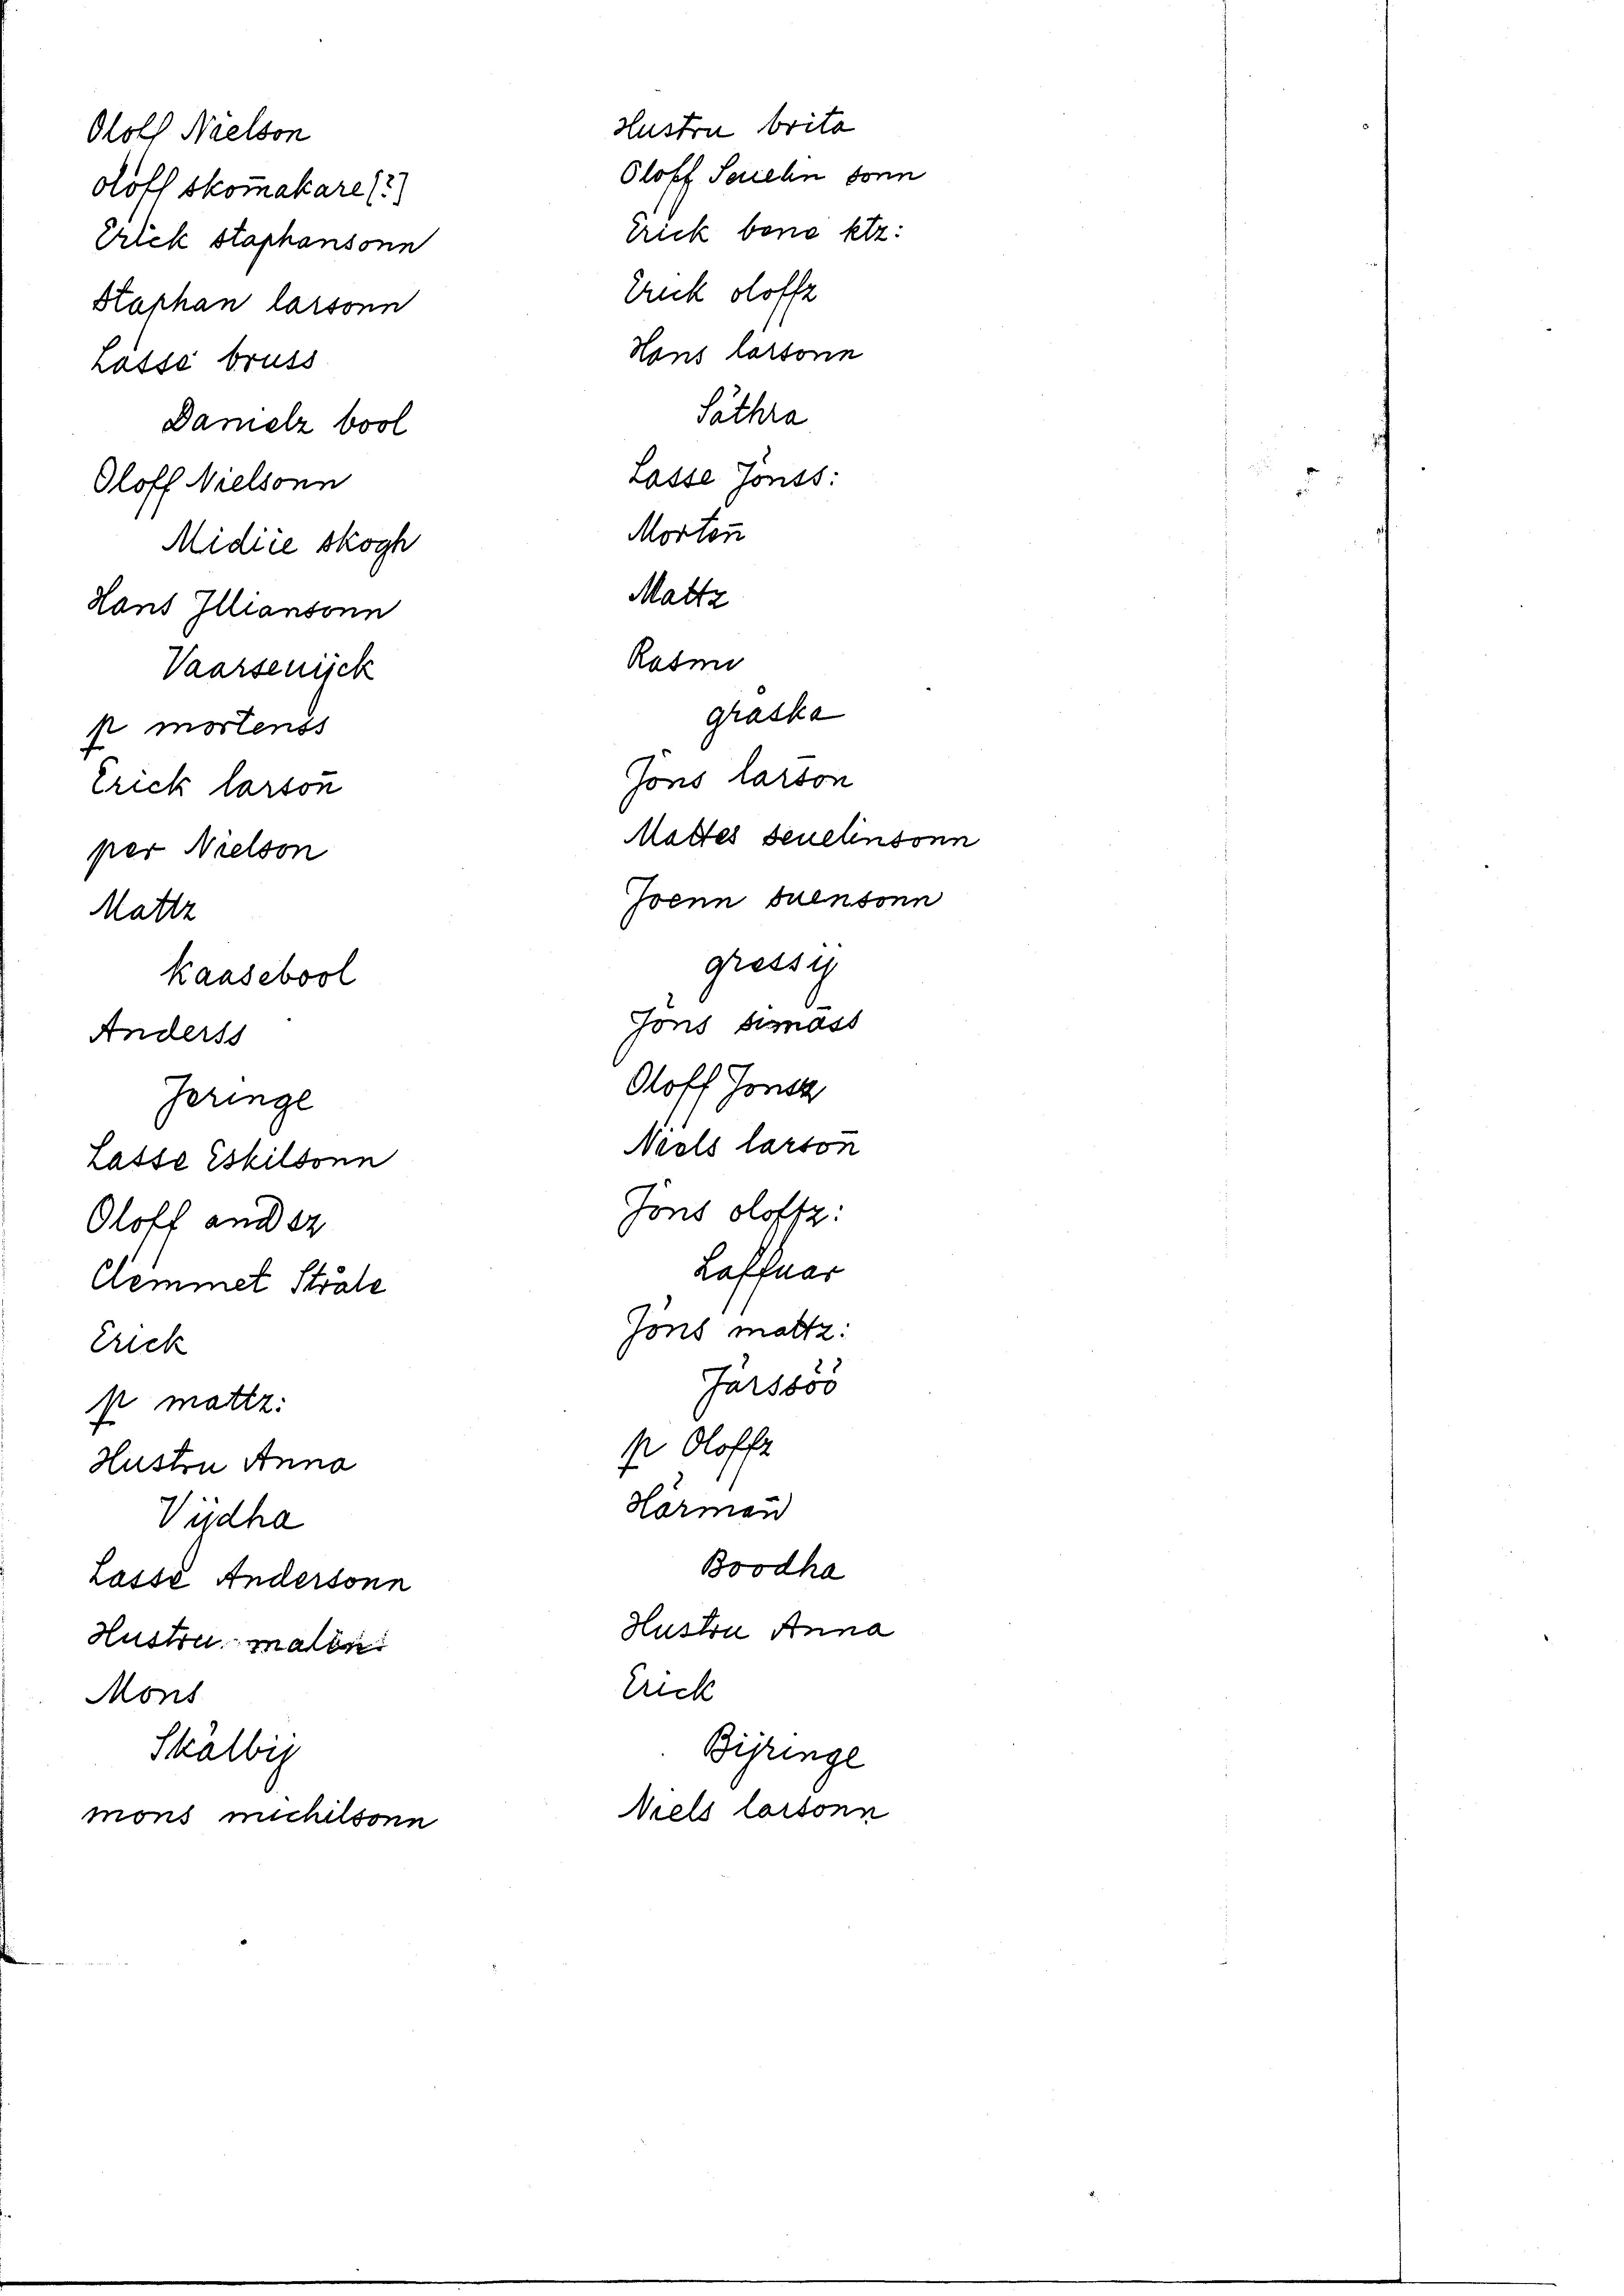 Oloff Nielson
oloff skom̄akare (?)
Erick staphansonn
Staphan larsonn
Lasse bruss
Danielz bool
Oloff Nielsonn
Midiie skogh
Hans Illiansonn
Vaarsenijck
p mortenss
Erick larson̄
per Nielson
Mattz
Kaasebool
Anderss
Jeringe
Lasse Eskilsonn
Oloff andsz
Clemmet Stråle
Erick
p mattz:
Hustru Anna
Vijdha
Lasse Andersonn
Hustru malin
Mons
Skälbij
mons michilsonn
Hustru brita
Oloff Seuelin sonn
Erick bene ktz:
Erick oloffz
Hans larsonn
Säthra
Lasse Jönss:
Morten̄
Mattz
Rasmi
gräska
Jöns larson
Mattes seuelinsonn
Joenn suensonn
gressij
Jöns simāss
Oloff Jonsz
Niels larson̄
Jöns oloffz:
Laffuar
Jöns mattz:
Järssöö
p Oloffz
Härman̄
Boodha
Hustru Anna
Erick
Bijringe
Niels larsonn